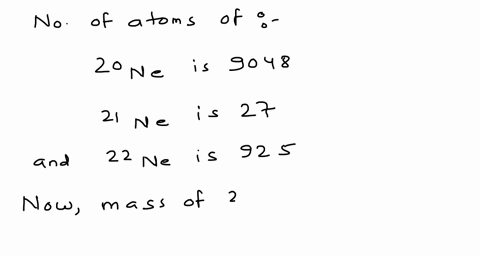 No. of atoms of :-
20 Ne is 9048
21 Ne is 27
and 22 Ne is 925
Now, mass of 2